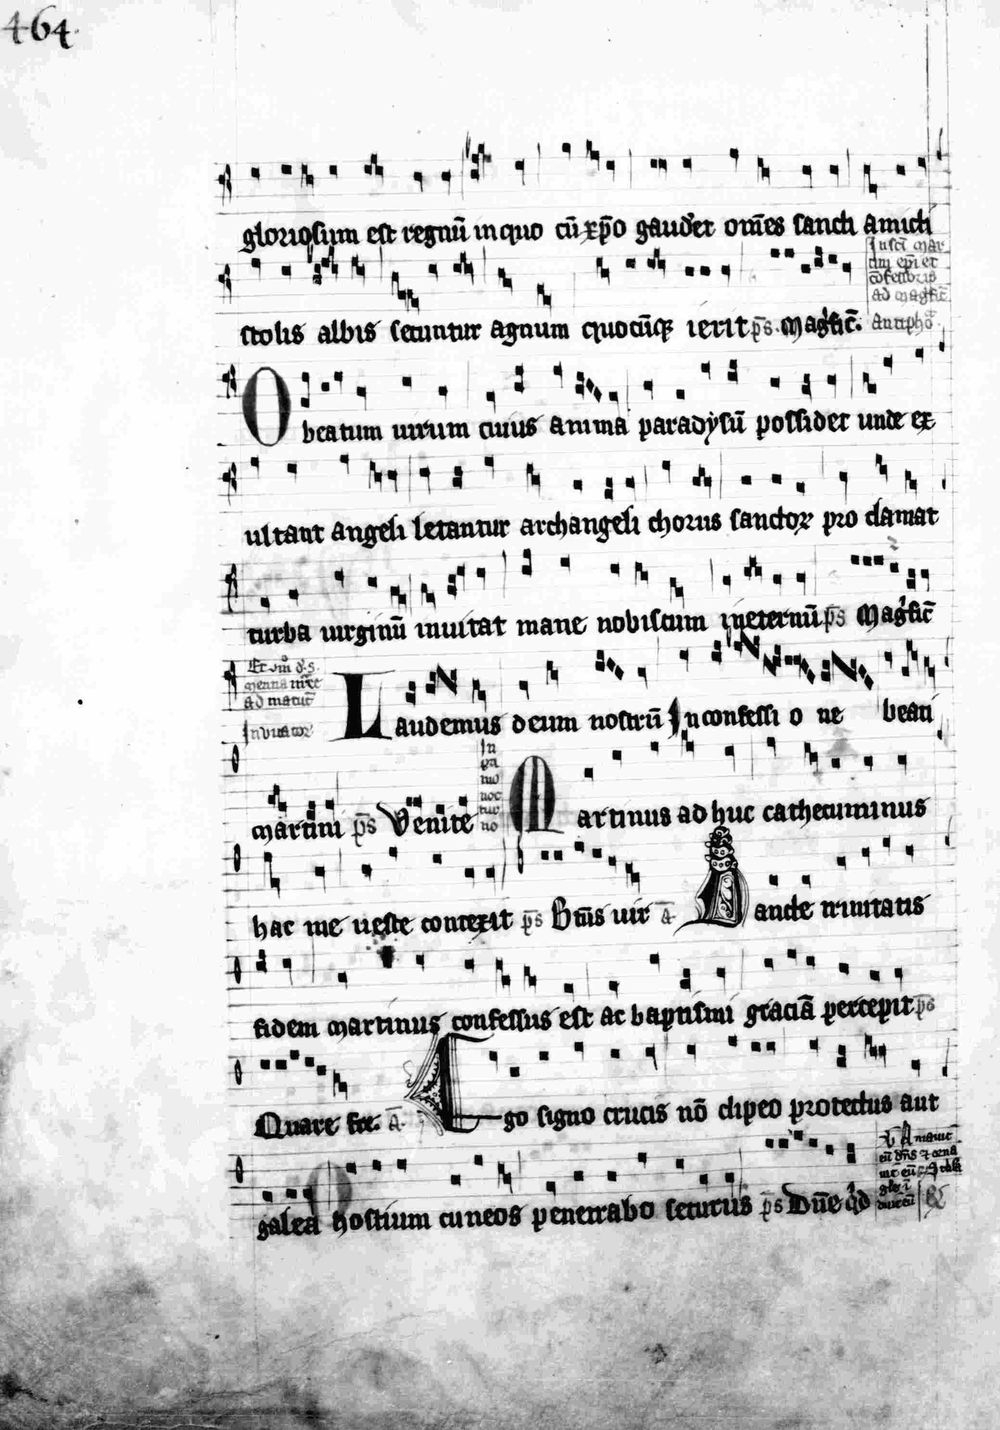 464
gloriosum est regnū in quo cū xp̄o gaudēt om̄es sancti amicti
In sc̄i Mar
tini ep̄i et
cōfessoris
ad mag̃fic̄
stolis albis secuntur agnum quocūqꝫ ierit p̄s. Mag̃fic̄. Antiphō
O beatum uirum cuius anima paradysū possidet unde ex
ultant angeli letantur archangeli chorus sanctoꝝ pro clamat
turba uirginū inuitat mane nobiscum ineternū p̄s Mag̃fic̄
ad matut̄
Inuitatoꝝ
Laudemus deum nostrū In confessi o ne beati
martini p̄s Venite
In
pri
mo
noc
tur
no
Martinus ad huc cathecuminus
hac me ueste contexit p̄s Bt̄us uir ā Sancte trinitatis
fidem martinus confessus est ac baptismi graciā percepit p̄s
Quare fre. ā Ego signo crucis nō clipeo protectus aut
galea hostium cuneos penetrabo securus p̄s Dn̄e q̇d
ꝟ Amauit
eū dn̄s ⁊ orna
uit eū